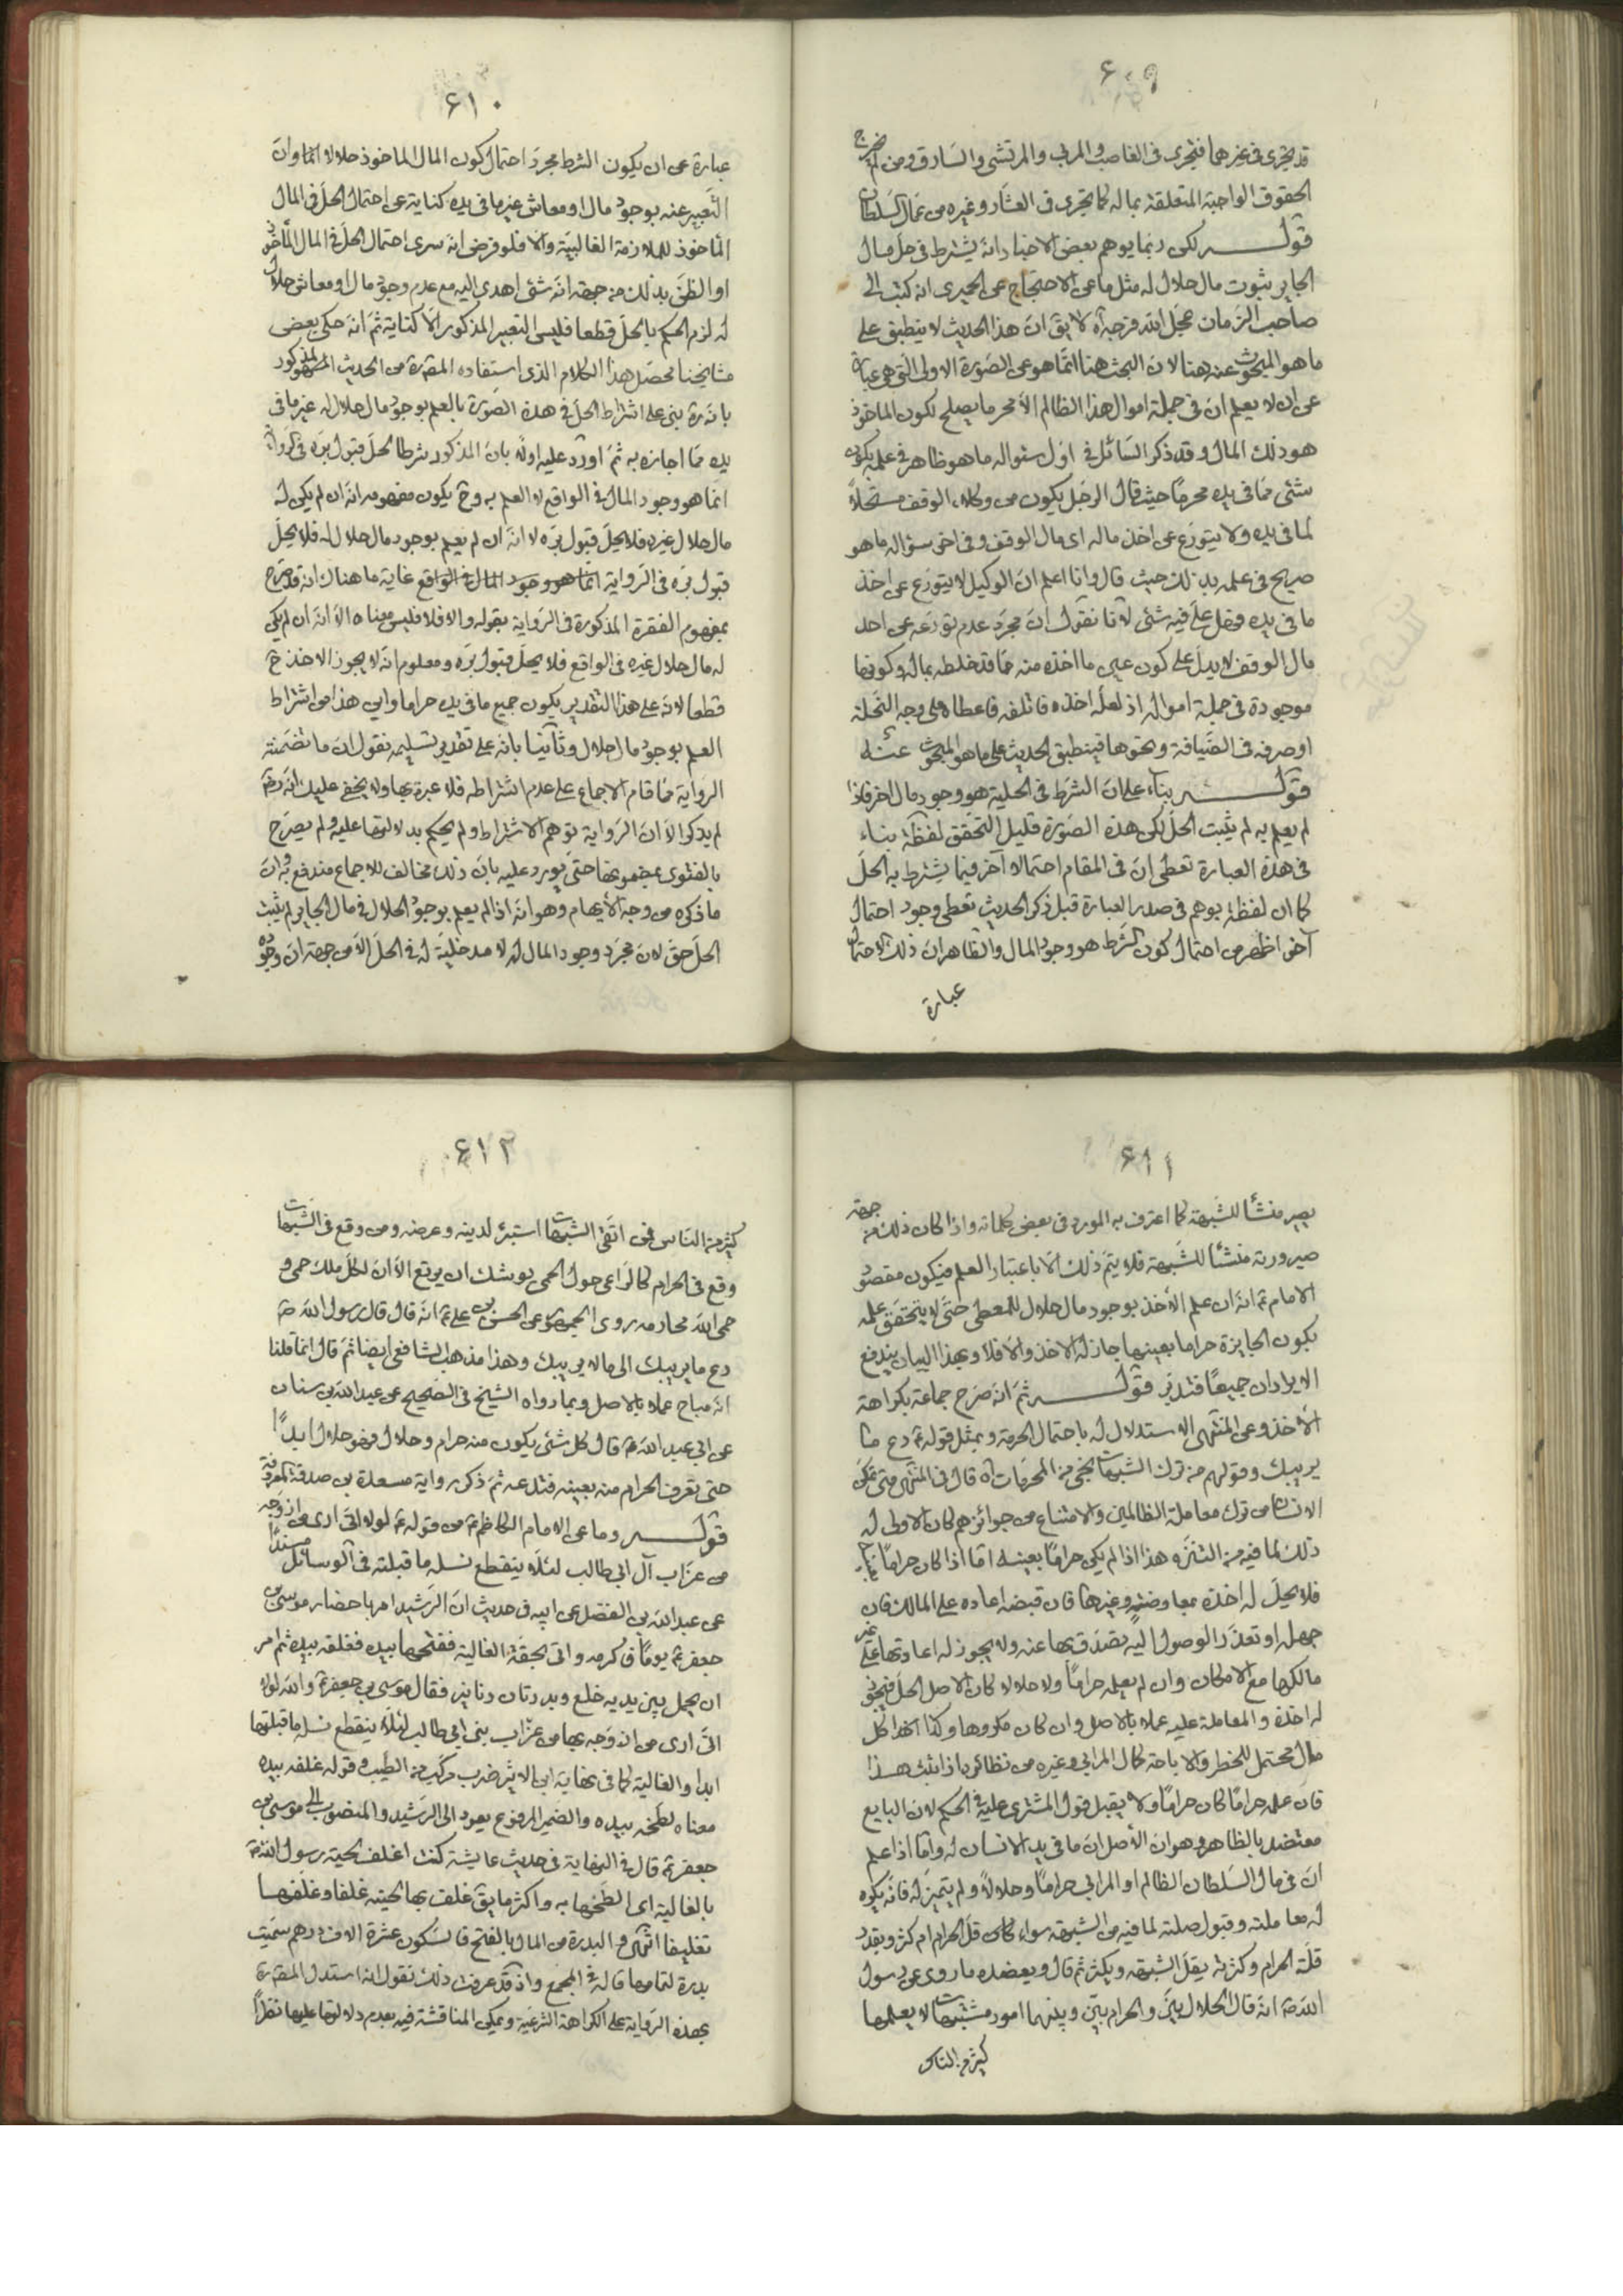 ۶۰۹
قد يجرى فى غيرهما فتجرى فى الغاصب والمربى والمرتشى والسارق ومن لم يخرج
الحقوق الواجبة المتعلقة بماله كما تجرى فى العشار وغيره من عمال السلطان
قوله لكن ربما يوهم بعض الاخبار انه يشترط فى حل مال
الجاير ثبوت مال حلال له مثل ما عن الاحتجاج عن الحميرى انه كتب الى
صاحب الزمان عجل الله فرجه آه لا يق ان هذا الحديث لا ينطبق على
ما هو المبحوث عنه هنا لان البحث هنا انما هو عن الصورة الاولى التى هى عبارة
عن ان لا يعلم ان فى جملة اموال هذا الظالم الا محرما يصلح لكون الماخوذ
هو ذلك المال وقد ذكر السائل فى اول سئواله ما هو ظاهر فى علمه بكون
شئى مما فى يده محرما حيث قال الرجل يكون من وكلاء الوقف مستحلا
لما فى يده ولا يتورع عن اخذ ماله اى مال الوقف وفى اخر سؤاله ما هو
صريح فى علمه بذلك حيث قال وانا اعلم ان الوكيل لا يتورع عن اخذ
ما فى يده فهل على فيه شئى لانا نقول ان مجرد عدم تورعه عن اخذ
مال الوقف لا يدل على كون عين ما اخذه منه مما قد خلطه بماله وكونها
موجودة فى جملة امواله اذ لعله اخذه فاتلفه فاعطاه على وجه النحلة
او صرفه فى الضيافة ونحوها فينطبق الحديث على ما هو المبحوث عنه
قوله بناء على ان الشرط فى الحلية هو وجود مال اخر فاذا
لم يعلم به لم يثبت الحل لكن هذه الصورة قليل التحقق لفظة بناء
فى هذه العبارة تعطى ان فى المقام احتمالا آخر فيما يشترط به الحل
كما ان لفظة يوهم فى صدر العبارة قبل ذكر الحديث تعطى وجود احتمال
آخر اظهر من احتمال كون الشرط هو وجود المال والظاهر ان ذلك الاحتمال
عبارة
۶۱۰
عبارة عن ان يكون الشرط مجرد احتمال كون المال الماخوذ حلالا انما وان
التعبير عنه بوجود مال او معاش غير ما فى يده كناية عن احتمال الحل فى المال
الماخوذ للملازمة الغالبية والا فلو فرض انه سرى احتمال الحل فى المال الماخوذ
او الظن بذلك من جهة انه شئى اهدى اليه مع عدم وجود مال او معاش حلال
له لزم الحكم بالحل قطعا فليس التعبير المذكور الا كناية ثم انه حكى بعض
مشايخنا محصل هذا الكلام الذى استفاده المصره من الحديث المذكور
بانه ره بنى على اشتراط الحل فى هذه الصورة بالعلم بوجود مال حلال له غير ما فى
يده مما اجازه به ثم اورد عليه اولا بان المذكور شرطا لحل قبول بره فى الرواية
انما هو وجود المال فى الواقع لا العلم به وح يكون مفهومه انه ان لم يكن له
مال حلال غيره فلا يحل قبول بره لا انه ان لم يعلم بوجود مال حلال له فلا يحل
قبول بره فى الرواية انما هو وجود المال فى الواقع غاية ما هناك انه قد صرح
بمفهوم الفقرة المذكورة فى الرواية بقوله والا فلا فليس معناه الا انه ان لم يكن
له مال حلال غيره فى الواقع فلا يحل قبول بره ومعلوم انه لا يجوز الاخذ ح
قطعا لانه على هذا التقدير يكون جميع ما فى يده حراما واين هذا من اشتراط
العلم بوجود مال حلال وثانيا بانه على تقدير تسليمه نقول ان ما تضمنته
الرواية مما قام الاجماع على عدم اشتراطه فلا عبرة بها ولا يخفى عليك انه ره
لم يذكر الا ان الرواية توهم الاشتراط ولم يحكم بدلالتها عليه ولم يصرح
بالفتوى بمضمونها حتى يورد عليه بان ذلك مخالف للاجماع مندفع بان
ما ذكره من وجه الايهام وهو انه اذا لم يعلم بوجود الحلال فى مال الجاير لم يثبت
الحل حق لان مجرد وجود المال له لا مدخلية له فى الحل الا من جهة ان وجوده
۶۱۱
يصير منشأ للشبهة كما اعترف به المورد فى بعض كلماته واذا كان ذلك من جهة
صيرورته منشئا للشبهة فلا يتم ذلك الا باعتبار العلم فيكون مقصود
الامام ع انه ان علم الاخذ بوجود مال حلال للمعطى حتى لا يتحقق علمه
بكون الجايزة حراما بعينها جاز له الاخذ والا فلا وبهذا البيان يندفع
الايرادان جميعا فتدبر قوله ثم انه صرح جماعة بكراهة
الاخذ وعن المنتهى الاستدلال له باحتمال الحرمة وبمثل قوله ع دع ما
يريبك وقولهم من ترك الشبهات نجى من المحرمات آه قال فى المنتهى متى تمكن
الانسان من ترك معاملة الظالمين والامتناع من جوائزهم كان الاولى له
ذلك لما فيه من التنزه هذا اذا لم يكن حراما بعينه اما اذا كان حراما
فلا يحل له اخذه بمعاوضة وغيرها فان قبضه اعاده على المالك فان
جهله او تعذر الوصول اليه تصدق بها عنه ولا يجوز له اعادتها على غير
مالكها مع الامكان وان لم يعلمه حراما ولا حلالا كان الاصل الحل فيجوز
له اخذه والمعاملة عليه عملا بالاصل وان كان مكروها وكذا
مال محتمل للحظر والاباحة كمال المرابى وغيره من نظائره اذا ثبت هذا
فان علمه حراما كان حراما ولا يقبل قول المشترى عليه فى الحكم لان البايع
معتضد بالظاهر وهو ان الاصل ان ما فى يد الانسان له واما اذا علم
ان فى مال السلطان الظالم او المرابى حراما وحلالا ولم يتميز له فانه يكره
له معاملته وقبول صلته لما فيه من الشبهة سواء كان قل الحرام ام كثر وبقدر
قلة الحرام وكثرته يقل الشبهة ويكثر ثم قال ويعضده ما روى عن رسول
الله ص انه قال الحلال بين والحرام بين وبينهما امور مشتبهات لا يعلمها
كثير من الناس
۶۱۲
كثير من الناس فمن اتقى الشبهات استبرء لدينه وعرضه ومن وقع فى الشبهات
وقع فى الحرام كالراعى حول الحمى يوشك ان يرتع الا ان لكل ملك حمى و
حمى الله محارمه روى الجمهور عن الحسن بن على ع انه قال قال رسول الله ص
دع ما يريبك الى ما لا يريبك وهذا مذهب الشافعى ايضا ثم قال انما قلنا
انه مباح عملا بالاصل وبما رواه الشيخ فى الصحيح عن عبد الله بن سنان
عن ابى عبد الله ع قال كل شئى يكون منه حرام وحلال فهو حلال ابدا
حتى تعرف الحرام منه بعينه فتدعه ثم ذكر رواية مسعدة بن صدقة المعروفة
قوله وما عن الامام الكاظم ع من قوله ع لولا انى ارى من ازوجه
من عزاب آل ابى طالب لئلا ينقطع نسله ما قبلته فى الوسائل مسندا
عن عبد الله بن الفضل عن ابيه فى حديث ان الرشيد امر باحضار موسى بن
جعفر ع يوما فاكرمه واتى بحقة الغالية ففتحها بيده فغلفه بيده ثم امر
ان يحمل بين يديه خلع وبدرتان دنانير فقال موسى بن جعفر ع والله لولا
انى ارى من ازوجه بها من عزاب بنى ابى طالب لئلا ينقطع نسله ما قبلتها
ابدا والغالية كما فى نهاية ابن الاثير ضرب مركب من الطيب وقوله غلفه بيده
معناه لطخه بيده والضمير المرفوع يعود الى الرشيد والمنصوب الى موسى بن
جعفر ع قال فى النهاية فى حديث عايشة كنت اغلف لحية رسول الله ص
بالغالية اى الطخها به واكثر ما يق غلف بها لحيته غلفا وغلفها
تغليفا انتهى والبدرة من المال بالفتح فالسكون عشرة الاف درهم سميت
بدرة لتمامها قاله فى المجمع واذ قد عرفت ذلك نقول انه استدل المصره
بهذه الرواية على الكراهة الشرعية ويمكن المناقشة فيه بعدم دلالتها عليها نظرا